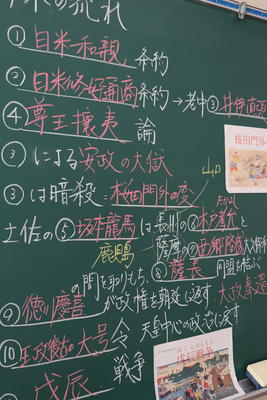 の流れ
① 日米和親 条約
② 日米修好通商条約 → 老中③ 井伊直
④ 尊王攘夷 論
③ による安政の大獄
③ は暗殺 = 桜田門外の変
土佐の⑤ 坂本龍馬は長州の⑥木戸孝允と
山口
たかよし
薩摩の⑦西郷隆盛
鹿児島
の間を取りもち
⑧ 薩長 同盟を結ぶ
⑨ 徳川慶喜 が政権を朝廷に返す 大政奉還
⑩ 王政復古の大号令 天皇中心の政治に戻す
戊辰 戦争
桜田門外
戊辰戦争